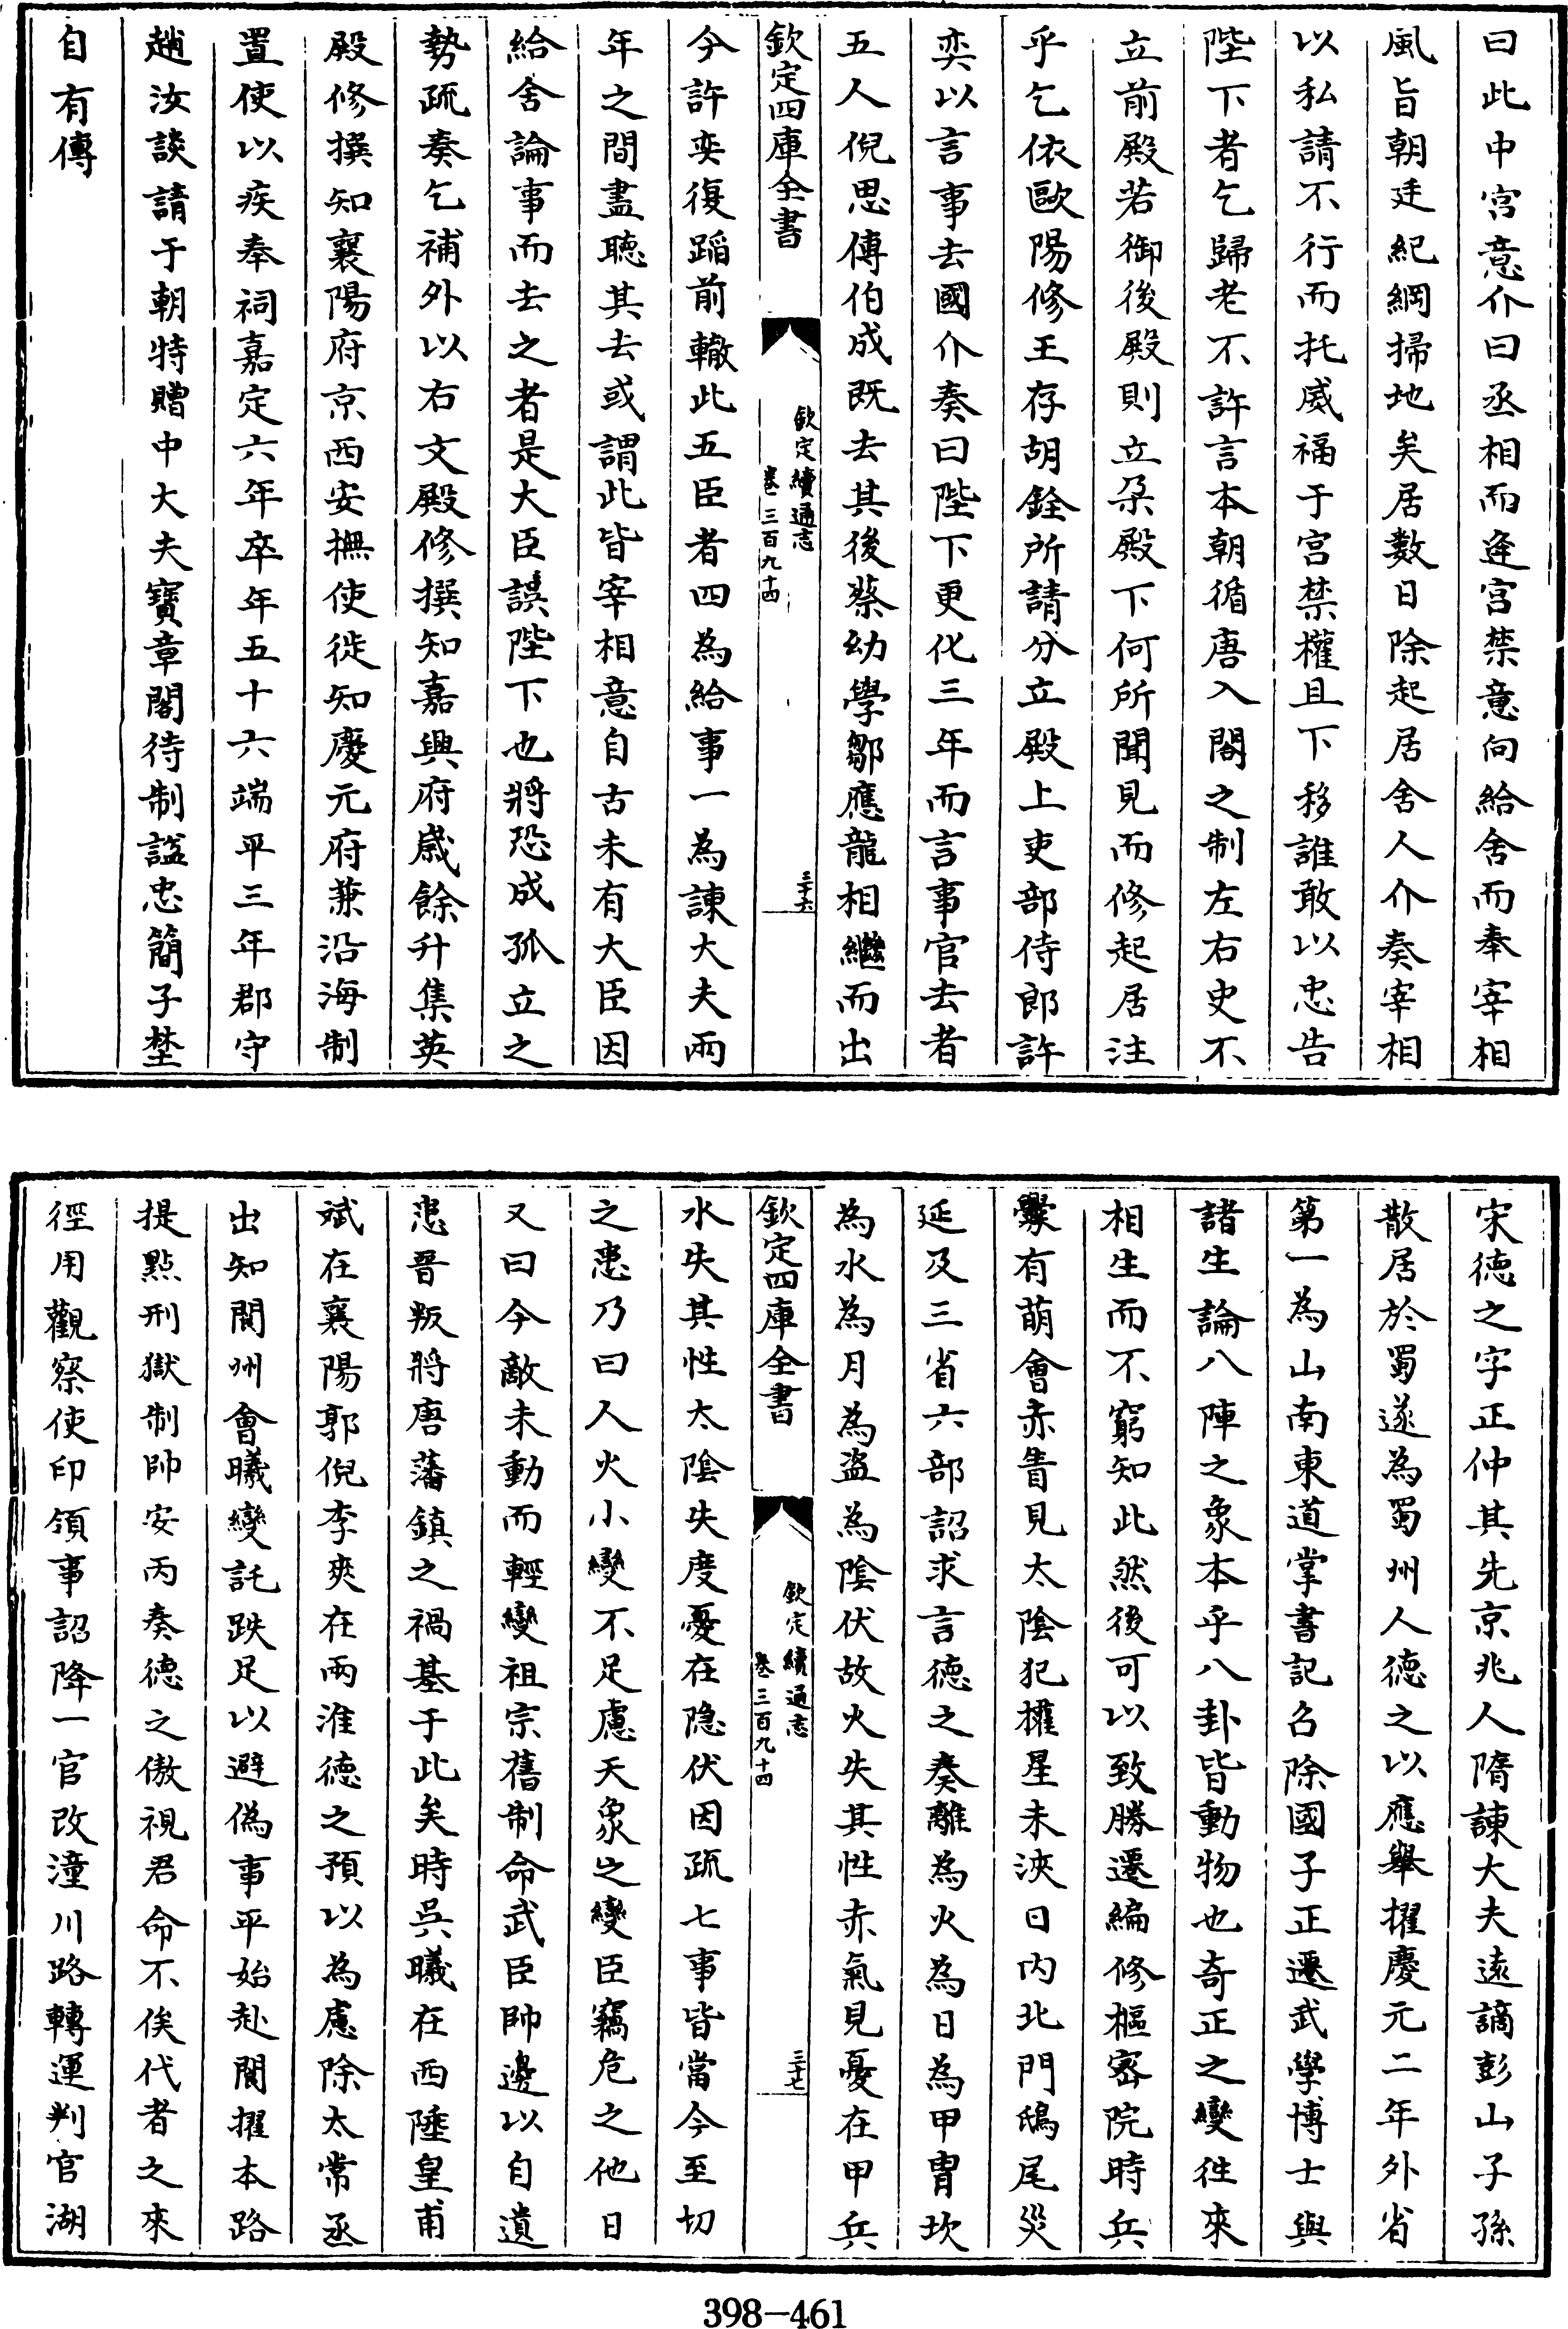 曰此中宮意介曰丞相而逢宮禁意向給舍而奉宰相
風旨朝廷紀綱掃地矣居數日除起居舍人介奏宰相
以私請不行而托威福于宮禁權且下移誰敢以忠告
陛下者乞歸老不許言本朝循唐入閣之制左右史不
立前殿若御後殿則立朶殿下何所聞見而修起居注
乎乞依歐陽修王存胡銓所請分立殿上吏部侍郎許
奕以言事去國介奏曰陛下更化三年而言事官去者
五人倪思傅伯成既去其後蔡幼學鄒應龍相繼而出
欽定四庫全書
欽定續通志
卷三百九十四
三十六
今許奕復蹈前轍此五臣者四為給事一為諫大夫兩
年之間盡聽其去或謂此皆宰相意自古未有大臣因
給舍論事而去之者是大臣誤陛下也將恐成孤立之
勢疏奏乞補外以右文殿修撰知嘉興府歲餘升集英
殿修撰知襄陽府京西安撫使徙知慶元府兼沿海制
置使以疾奉祠嘉定六年卒年五十六端平三年郡守
趙汝談請于朝特贈中大夫寶章閣待制諡忠簡子埜
自有傳
宋德之字正仲其先京兆人隋諫大夫遠謫彭山子孫
散居於蜀遂為蜀州人德之以應舉擢慶元二年外省
第一為山南東道掌書記召除國子正遷武學博士與
諸生論八陣之象本乎八卦皆動物也奇正之變徃來
相生而不窮知此然後可以致勝遷編修樞密院時兵
釁有萌會赤眚見太陰犯權星未浹日內北門鴟尾災
延及三省六部詔求言德之奏離為火為日為甲胄坎
為水為月為盜為陰伏故火失其性赤氣見憂在甲兵
欽定四庫全書
欽定續通志
卷三百九十四
三十七
水失其性太陰失度憂在隐伏因疏七事皆當今至切
之患乃曰人火小變不足慮天象之變臣竊危之他日
又曰今敵未動而輕變祖宗舊制命武臣帥邊以自遺
患晉叛將唐藩鎮之禍基于此矣時吳曦在西陲皇甫
斌在襄陽郭倪李爽在兩淮德之預以為慮除太常丞
出知閬州會曦變託跌足以避偽事平始赴閬擢本路
提點刑獄制帥安丙奏德之傲視君命不俟代者之來
徑用觀察使印領事詔降一官改潼川路轉運判官湖
398-461